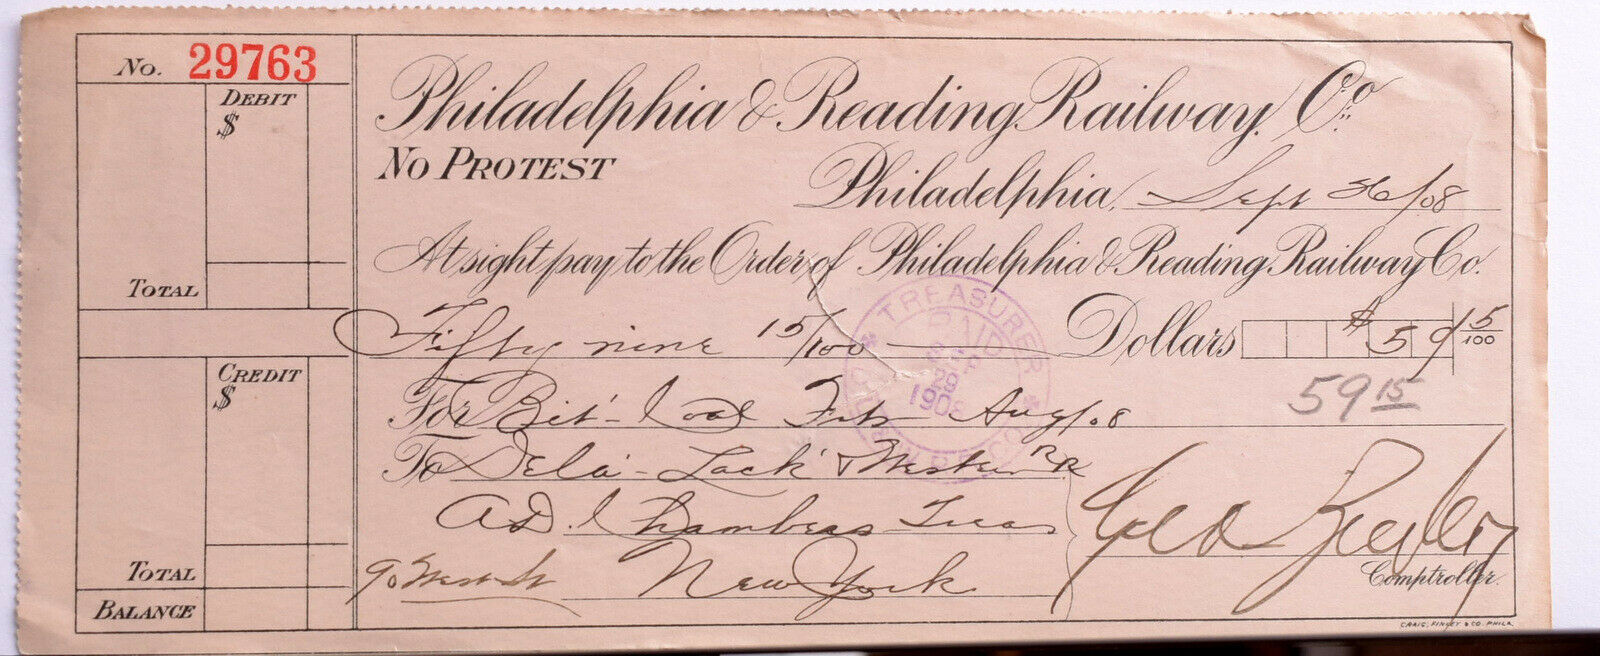 No. 29763
DEBIT
$
TOTAL
CREDIT
$
TOTAL
BALANCE
Philadelphia & Reading Railway. Co.
NO PROTEST
Philadelphia, Sept 26/08
At sight pay to the Order of Philadelphia & Reading Railway Co.
Fifty nine 15/100 Dollars $ 59 15/100
59 15
For Bit'- Coal Aug/08
To Dela'- Lack' & Western RR
A D Chambers Treas
90 West St New York
Geo Ziegler
Comptroller.
TREASURER
PAID
SEP
29
1908
CRAIG, FINLEY & CO. PHILA.